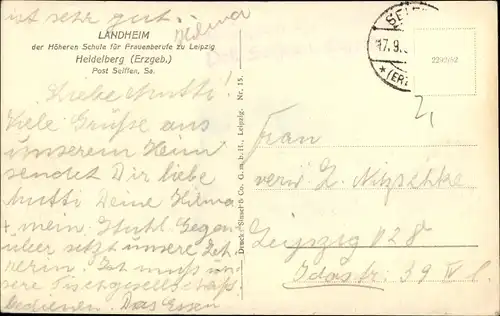 ist sehr gut.
Hilma
LANDHEIM
der Höheren Schule für Frauenberufe zu Leipzig
Heidelberg (Erzgeb.)
Post Seiffen, Sa.
Liebe Mutti!
Viele Grüße aus
unserem Heim
sendet Dir liebe
Mutti Deine Hilma
+ mein Stuhl. Gegen-
über sitzt unsere Leh-
rerin. Ich muß un-
sere Tischgesellschaft
bedienen. Das Essen
Druck: Sinsel & Co. G. m. b. H., Leipzig. Nr. 15.
SEIFF
17.9.
*(ERZ
2290/82
Frau
verw. L. Nitzschke
Leipzig O 28
Idastr. 39 IV l.